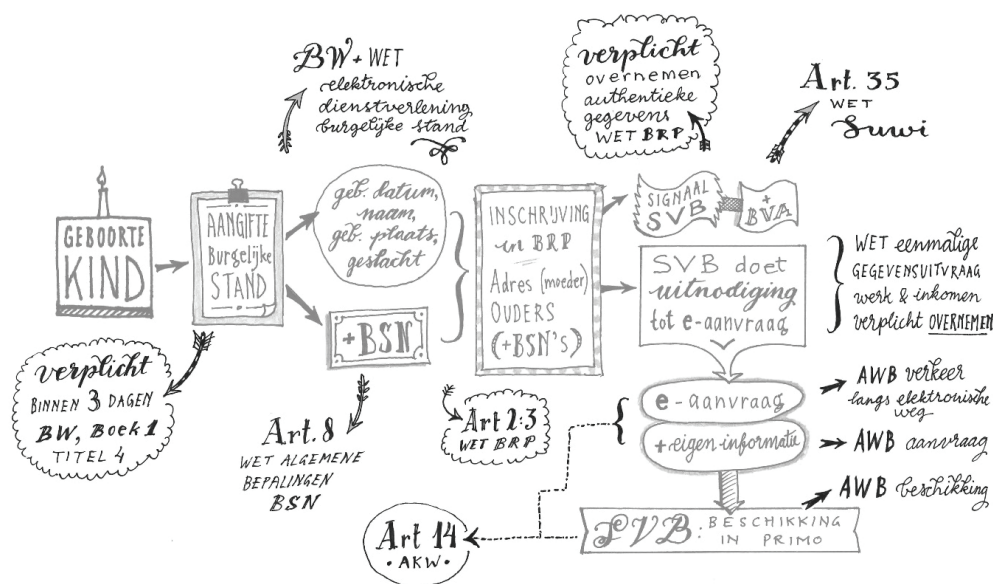 BW + WET
elektronische
dienstverlening
burgelijke stand
verplicht
overnemen
authentieke
gegevens
WET BRP
Art. 35
WET
Suwi
GEBOORTE
KIND
AANGIFTE
Burgelijke
STAND
geb. datum,
naam,
geb. plaats,
geslacht
+BSN
INSCHRIJVING
in BRP
Adres (moeder)
OUDERS
(+BSN's)
SIGNAAL
SVB
+
BVA
SVB doet
uitnodiging
tot e-aanvraag
WET eenmalige
GEGEVENSUITVRAAG
werk & inkomen
verplicht OVERNEMEN
verplicht
BINNEN 3 DAGEN
BW, Boek 1
TITEL 4
Art. 8
WET ALGEMENE
BEPALINGEN
BSN
Art 2:3
WET BRP
e-aanvraag
+ eigen informatie
AWB verkeer
langs elektronische
weg
AWB aanvraag
AWB beschikking
Art 14
• AKW •
SVB: BESCHIKKING
IN PRIMO